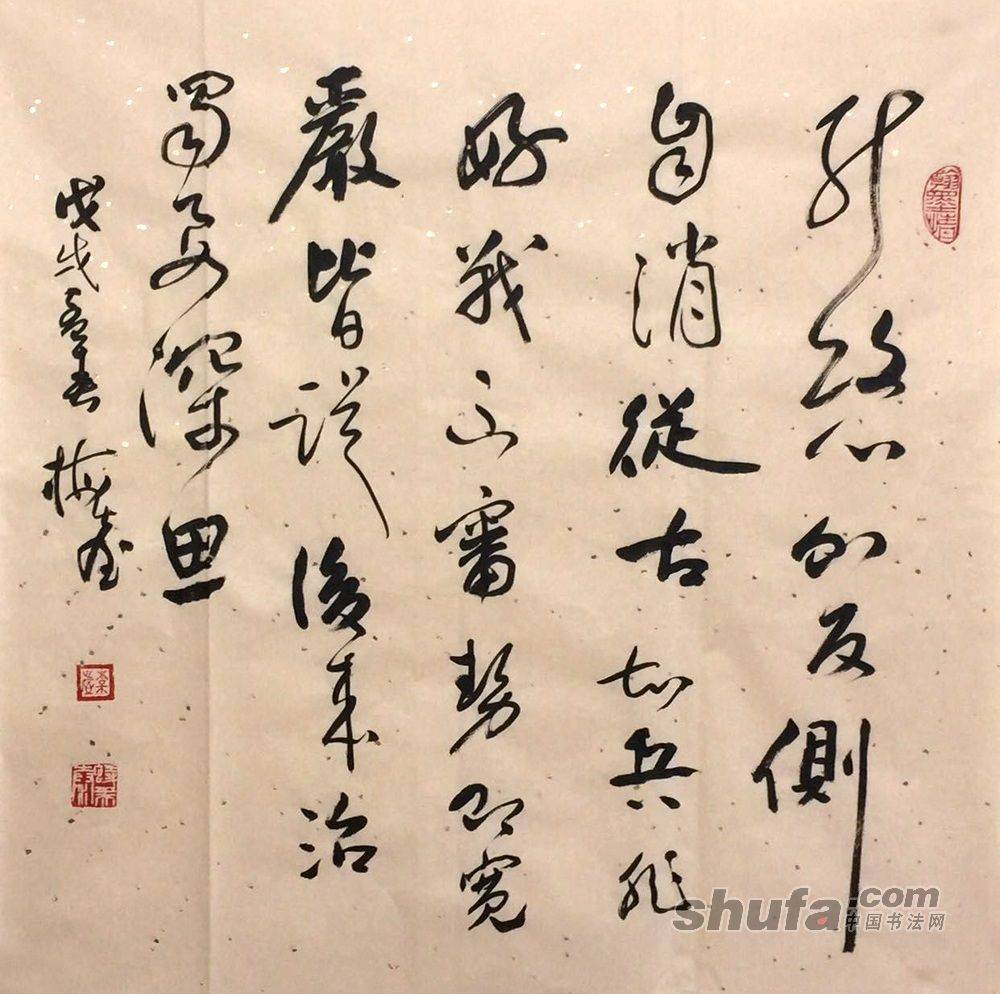 翰墨情
能攻心則反側
自消從古知兵非
好戰不審勢即寬
嚴皆誤後來治
蜀要深思
戊戌春梅
shufa.com
中国书法网